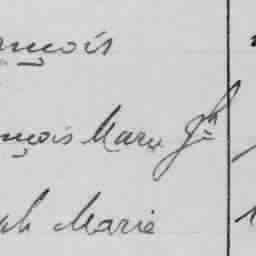 ançois
nçois Marie Jh
ph Marie